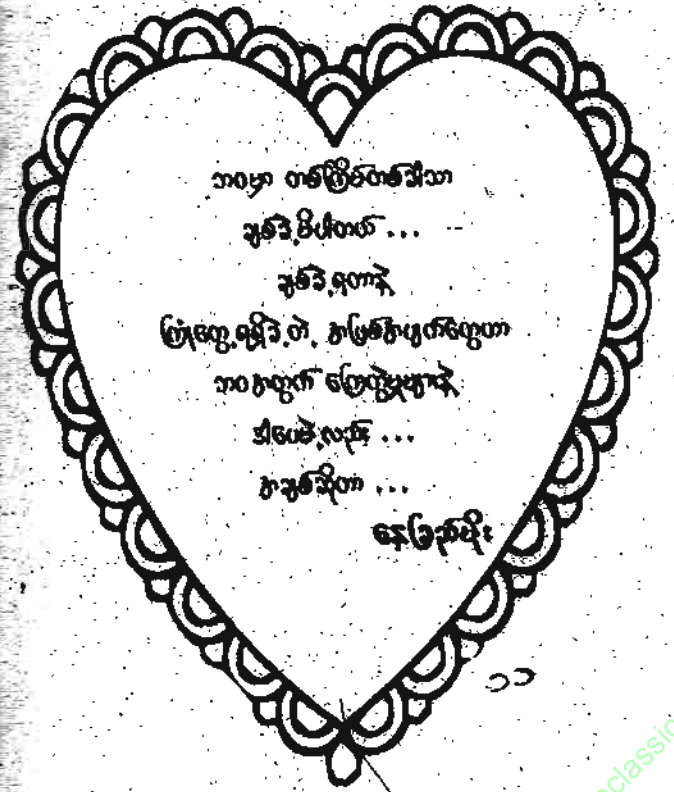 ဘဝမှာ တစ်ကြိမ်တစ်ခါသာ
ချစ်ခဲ့မိပါတယ် ...
ချစ်ခဲ့ရတာနဲ့
ကြုံတွေ့ရရှိခဲ့တဲ့ နာဖြစ်နာပျက်တွေဟာ
ဘဝအတွက် ကြေကွဲမှုများနဲ့
ဒါပေမဲ့လည်း ...
အချစ်ဆိုတာ ...
နေခြည်မိုး
၁၁
classic